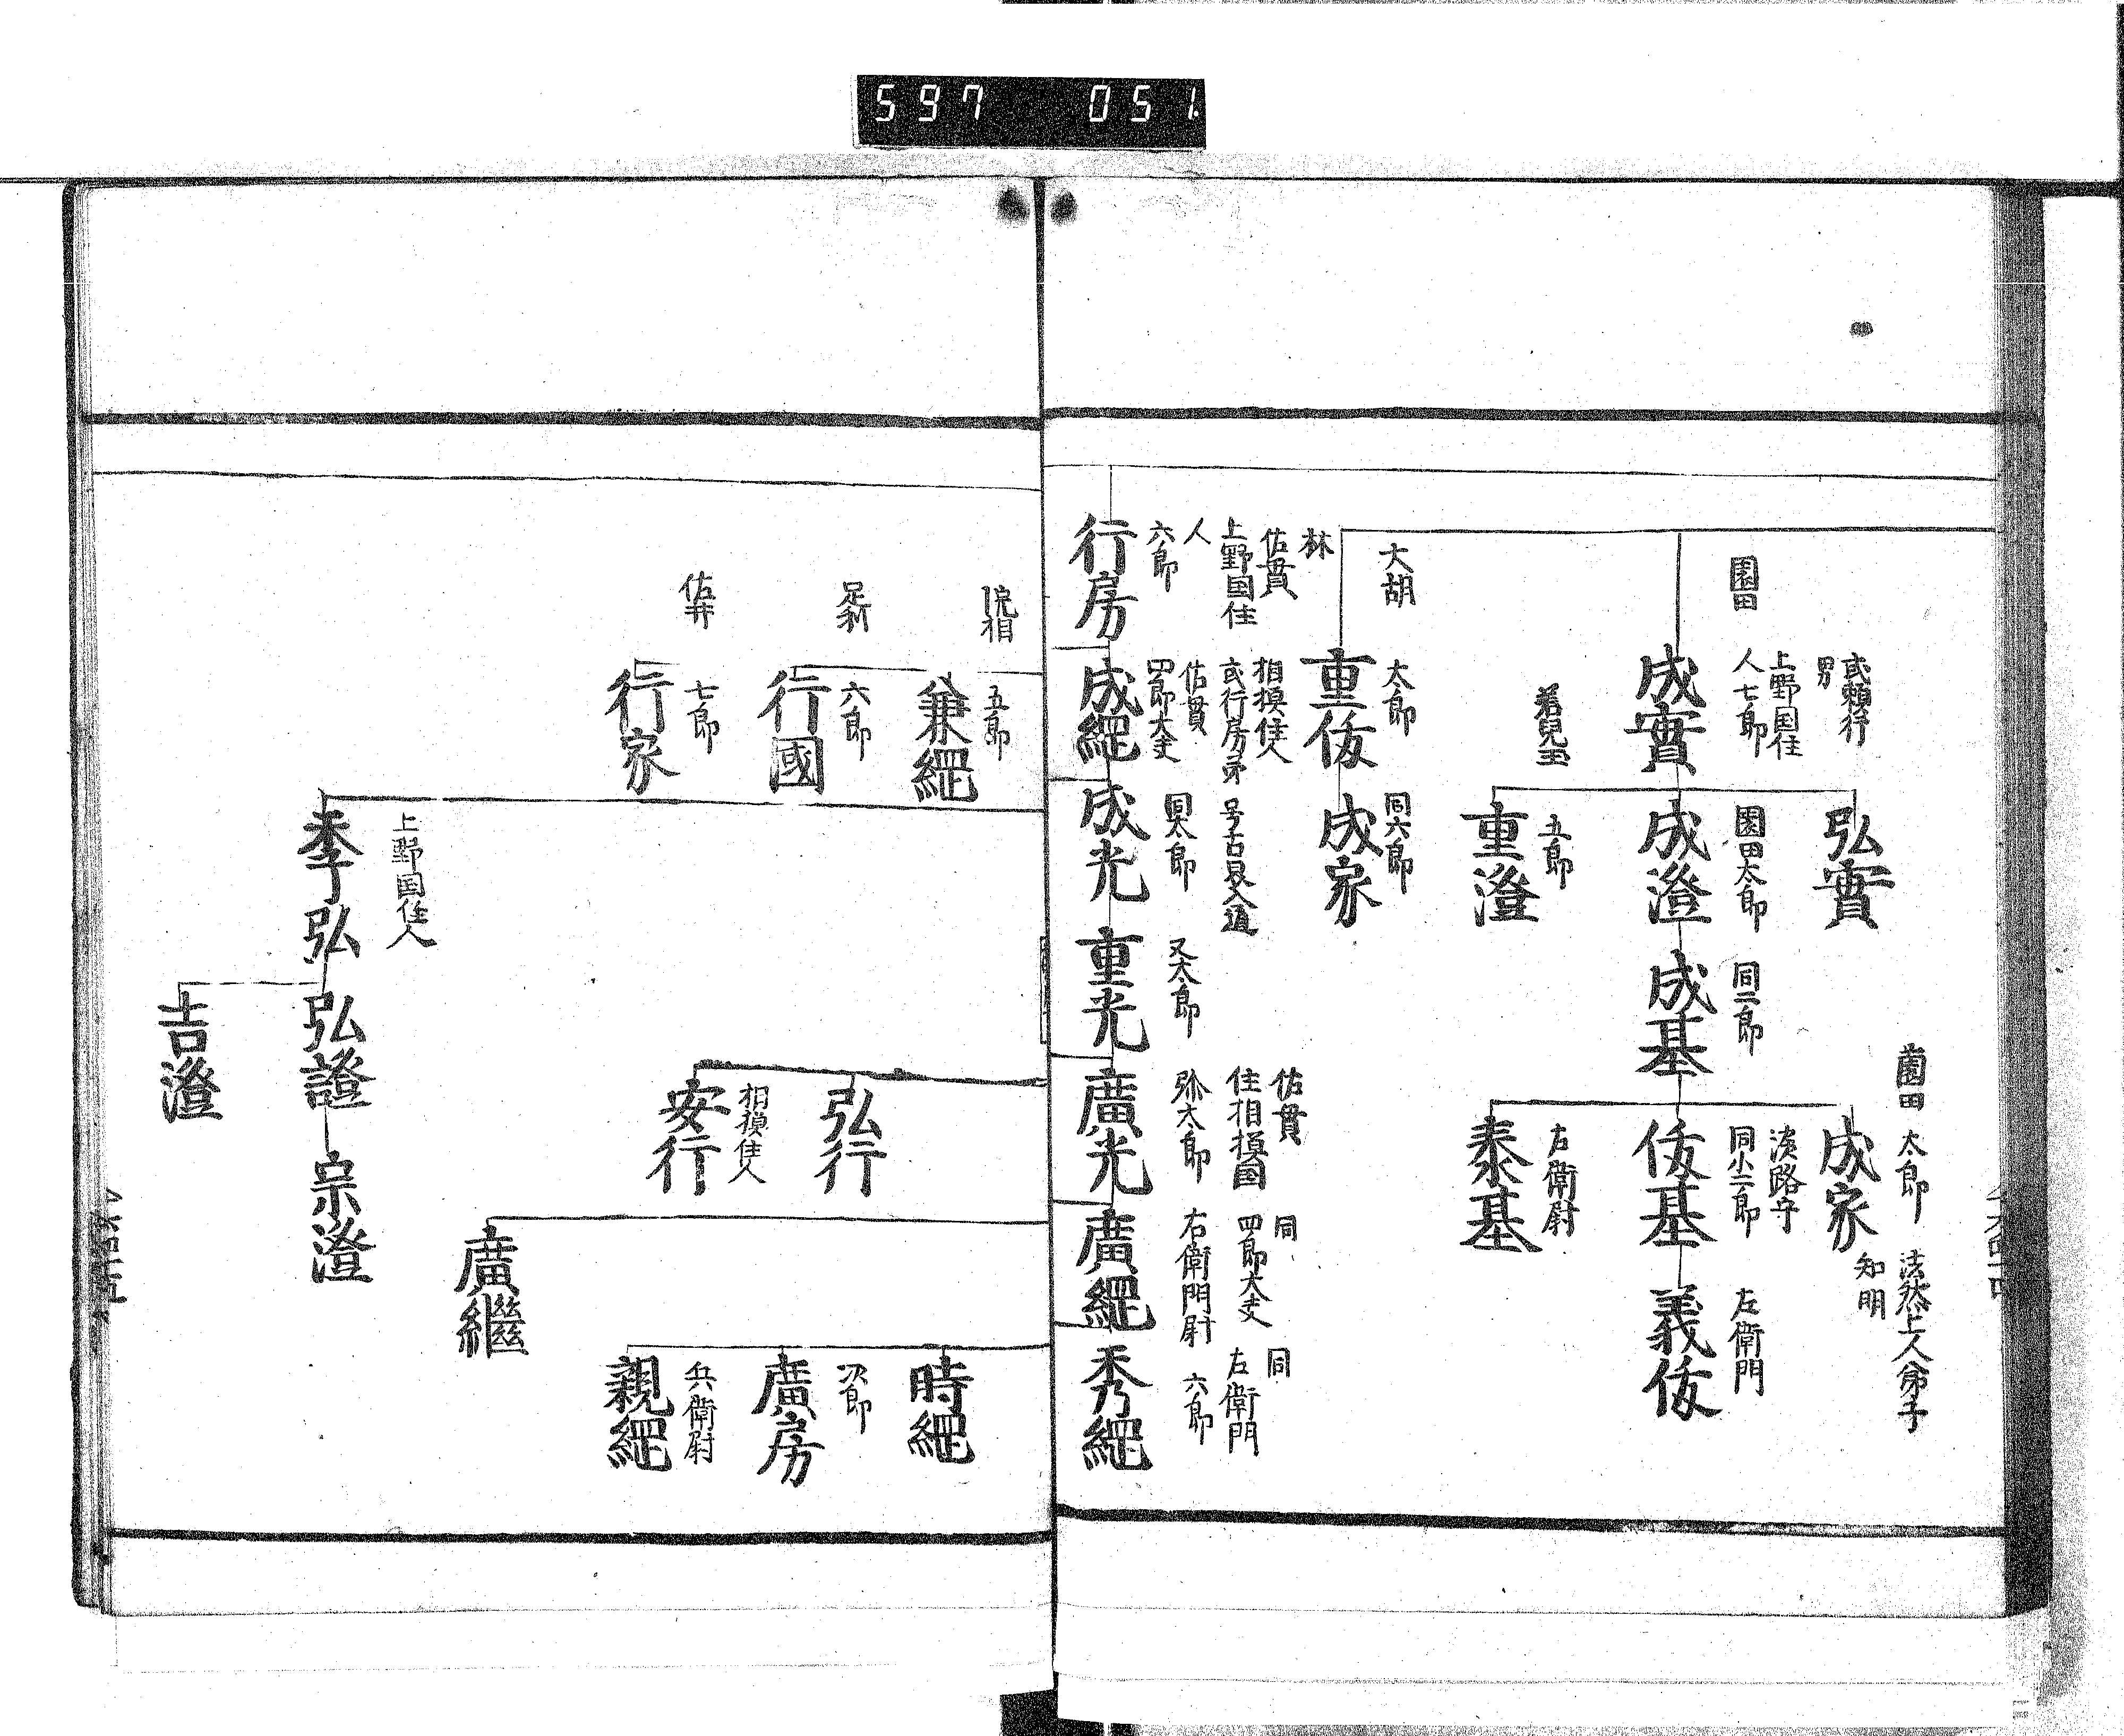 597 051
園田
或頼行
男
上野国住
人七郎
成實
弘實
園田太郎
成澄
五郎
重澄
同二郎
成基
園田
太郎
法然上人弟子
知明
成家
淡路守
同小二郎
俊基
左衛門
義俊
右衛尉
泰基
大胡
太郎
重俊
同六郎
成家
林
佐貫
上野国住
人
六郎
行房
相摸住人
或行房弟
佐貫
四郎大夫
成綱
同太郎
成光
又太郎
重光
佐貫
住相摸国
弥太郎
廣光
同
四郎大夫
右衛門尉
廣綱
同
左衛門
六郎
秀綱
五郎
兼綱
足利
六郎
行國
佐井
七郎
行家
弘行
相摸住人
安行
廣繼
時綱
次郎
廣房
兵衛尉
親綱
上野国住人
季弘
弘證
宗澄
吉澄